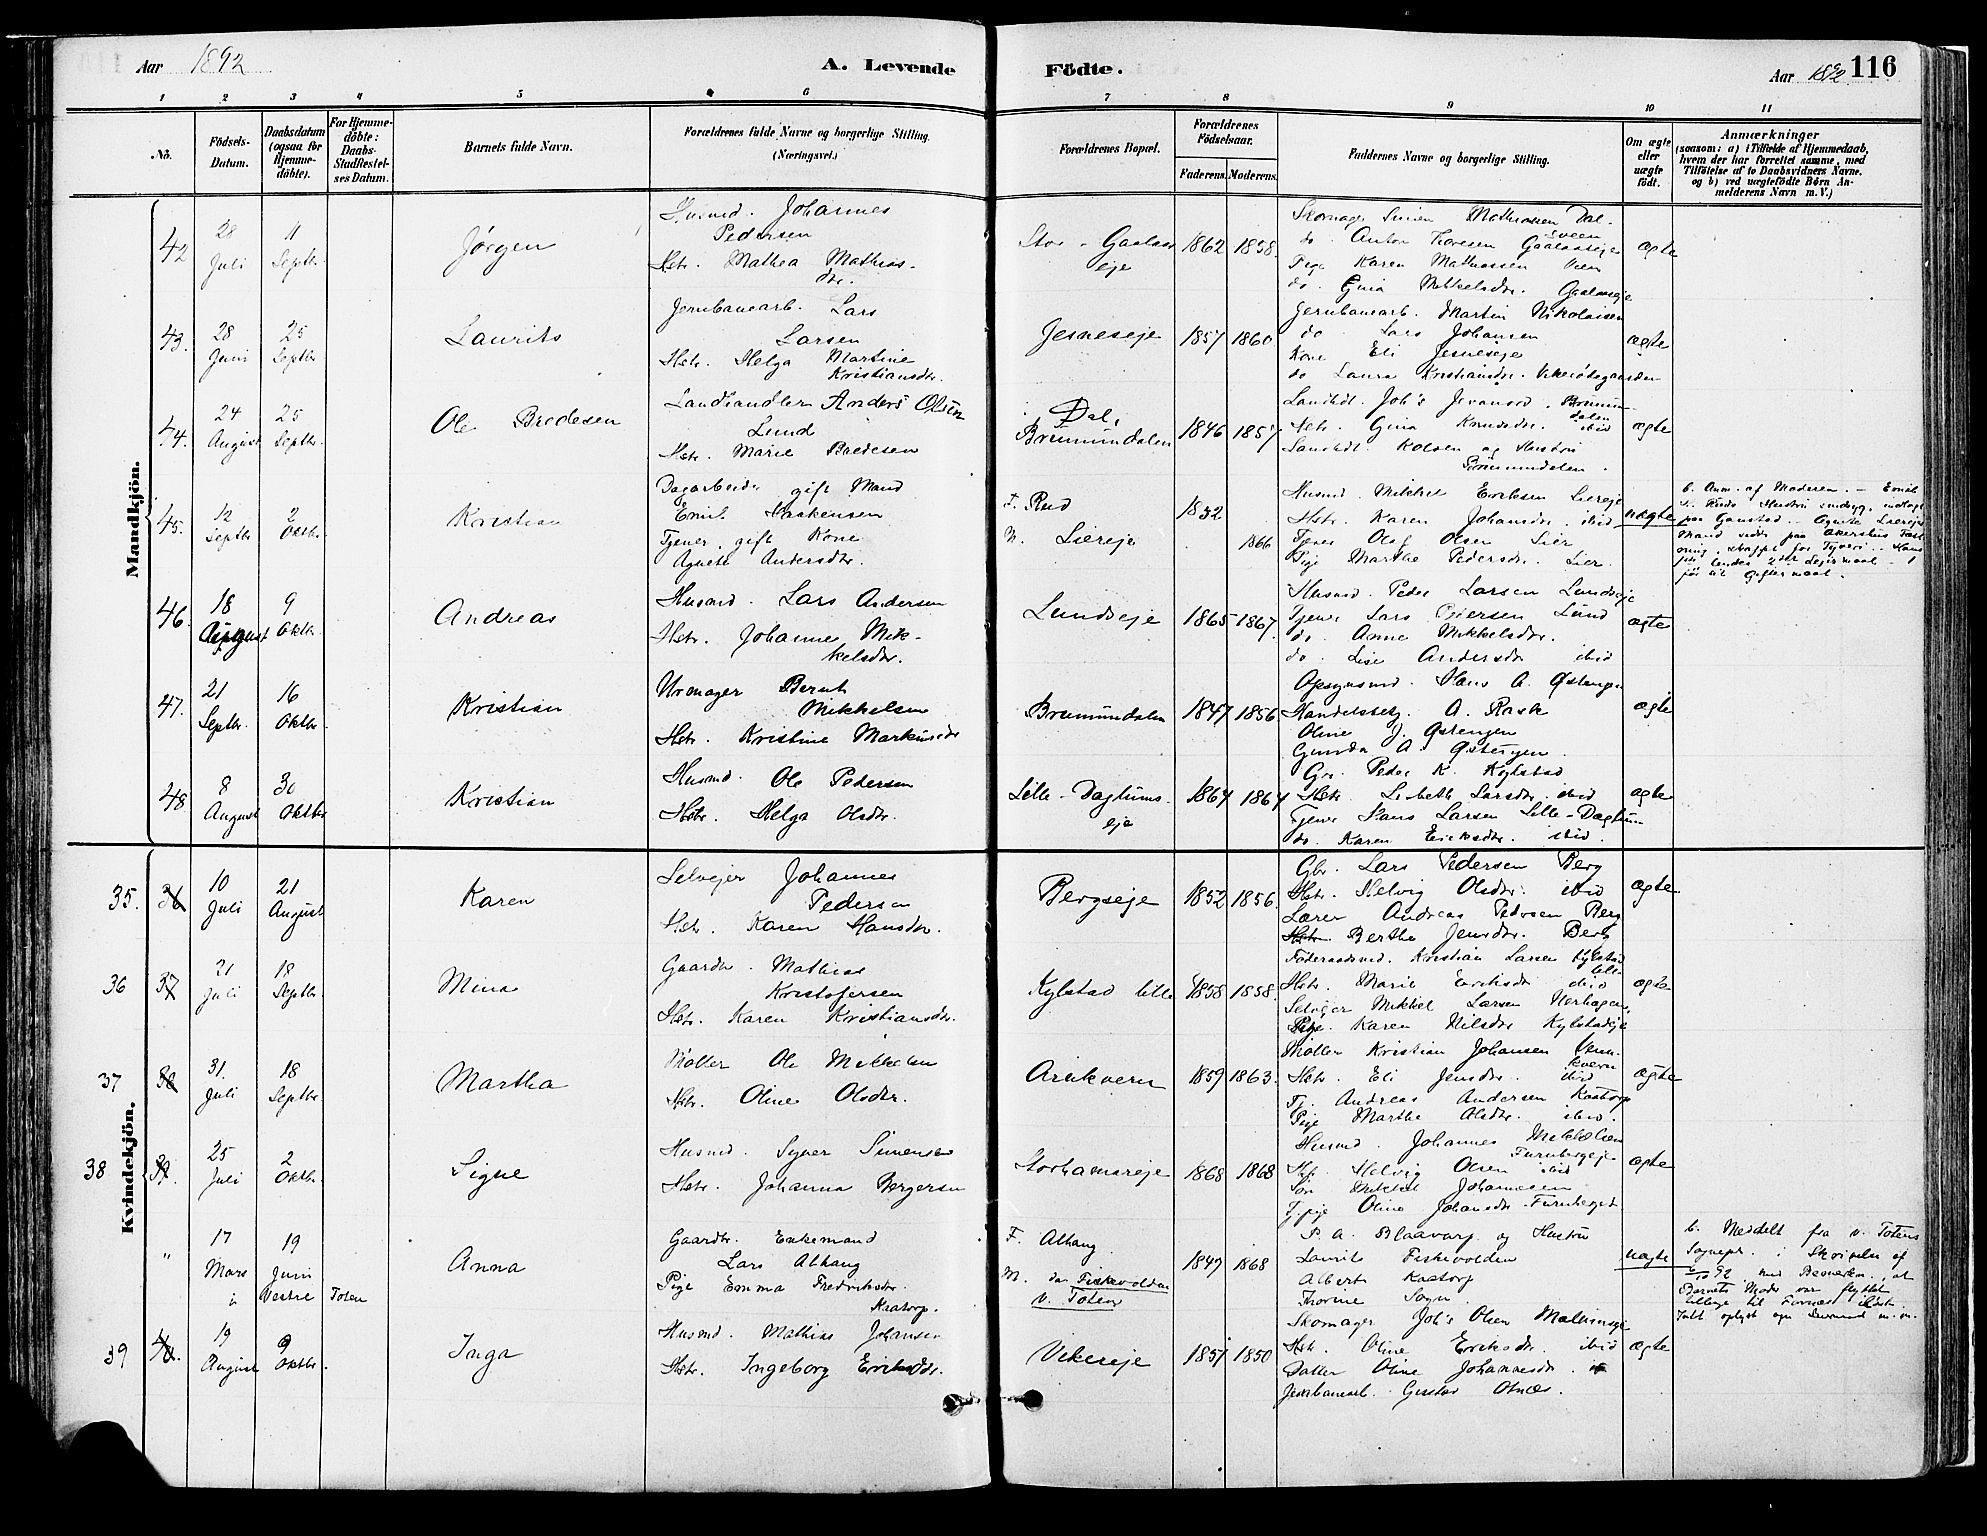 Aar 1892
A. Levende Födte.
Aar 1892 116
1 2 3 4 5 6 7 8 9 10 11
No.
Födsels-Datum.
Daabsdatum (ogsaa for Hjemmedöbte).
For Hjemmedöbte: Daabs-Stadfæstelses Datum.
Barnets fulde Navn.
Forældrenes fulde Navne og borgerlige Stilling. (Næringsvei.)
Forældrenes Bopæl.
Forældrenes Födselsaar.
Faderens. Moderens.
Faddernes Navne og borgerlige Stilling.
Om ægte eller uægte födt.
Anmærkninger
(saasom: a) i Tilfælde af Hjemmedaab, hvem der har forrettet samme, med Tilföielse af to Daabsvidners Navne. og b) ved uægtefödte Börn Anmelderens Navn m. V.)
Mandkjön.
42 28 Juli 11 Septbr.
Jørgen
Husmd. Johannes
Pedersen
Hstr. Mathea Mathias-
dtr.
Stor-Gaalaas
eje
1862 1858.
do. Anton Thoresen Gaalaaseje
Pige Karen Mathiassen
do. Gina Mikkelsdtr. Gaalaaseje
ægte
43. 28 Juni 25 Septbr.
Laurits
Jernbanearb. Lars
Larsen
Hstr. Helga Martine
Kristiansdtr.
Jesneseje
1857 1860
Jernbanearb. Martin Nikolaisen
do Lars Johansen
Kone Eli Jesneseje
do Laura Kristiansdtr.
ægte
44. 24 August 25 Septbr.
Ole Bredesen
Landhandler Anders Olsen
Lund
Hstr. Marie Bredesen
Dal,
Brumunddalen
1846 1857
Landhdl. Joh's Jevanord. Brumun-
dalen
Hstr. Gina Knudsdtr. ibid
Landhdl. Kolsen og Hustru
Brumundalen.
ægte
45. 12 Septbr. 2 Oktbr.
Kristian
Dagarbeider gift Mand
Emil Haakensen
Tjener gift Kone
Agnete Andersdtr.
F. Rud
M. Liereje
1852
1866
Husmd. Mikkel Eriksen Liereje
Hstr. Karen Johansdtr. ibid
Tjener Olaf Olsen Lier
Pige Marthe Pedersdtr. Lier.
uægte
b. Anm. af Moderen. - Emil
46. 18 August 9 Oktbr.
Andreas
Husmd. Lars Andersen
Hstr. Johannes Mik-
kelsdtr.
Lundseje
1865 1867.
Husmd. Peder Larsen Lundseje
Tjener Lars Larsen Lund
do. Anne Mikkelsdtr.
do. Lise Andersdtr ibid
ægte
47. 21 Septbr. 16 Oktbr.
Kristian
Urmager Bernt
Mikkelsen
Hstr. Kristine Markusdtr
Brumundalen
1847 1856.
Opsynsmd. Hans A. Østengen
Handelsbetj. A. Rask
Oline J. Østengen
Gunda A. Østengen.
ægte
48. 8 August 30 Oktbr
Kristian
Husmd. Ole Pedersen
Hstr. Helga Olsdtr.
Lille-Daglums-
eje
1864 1864
Gr. Peder K. Kylstad
Hstr. Lisbeth Larsdtr. ibid
Tjener Hans Larsen Lille-Daglum
do. Karen Eriksdtr. ibid.
ægte
Kvindekjön.
35. 36 10 Juli 21 August
Karen
Selvejer Johannes
Pedersen
Hstr. Karen Hansdtr.
Bergseje
1852 1856.
Gbr. Lars Pedersen Berg
Hstr. Helvig Olsdtr. ibid
Lærer Andreas Pedersen Berg
Hstr. Berthe Jensdtr. Berg
ægte
36 37 21 Juli 18 Septbr.
Mina
Gaardbr. Mathias
Kristofersen
Hstr. Karen Kristiansdtr.
Kylstad lille
1858 1858.
Føderaadsmd. Kristian Larsen Kylstad
lille
Hstr. Marie Eriksdtr ibid
Selvejer Mikkel Larsen Norhagen
Pige Karen Nilsdtr Kylstadeje
ægte
37 38 31. Juli 18 Septbr.
Martha
Møller Ole Mikkelsen
Hstr. Oline Olsdtr.
Arnkvern
1859 1863.
Møller Kristian Johansen
kvern
Hstr. Eli Jensdtr. ibid
Tj. Andreas Andersen Kastorp
Pige Marthe Olsdtr. ibid.
ægte
38 39. 25 Juli 2 Oktbr.
Signe
Husmd. Syver Simensen
Hstr. Johanna Bergersen
Storhamareje
1868 1868
Husmd. Johannes Mikkelsen
Furubergeje
Hstr. Helvig Olsen ibid
Søn Mikkel Johannesen
Tj.pige Oline Johansdtr. Furuberget
ægte
" 17 Mars 19 Juni
i Vestre Toten
Anna
Gaardbr. Enkemand
Lars Alhaug
Pige Emma Fredriksdtr.
Kratorp.
F. Alhaug.
M. Fiskevolden
V. Toten
1849 1868
P. A. Blaavarp og Hustru
Laurits Fiskevolden
Albert Kratorp
Thorine Sogn.
uægte
b. Meddelt fra V. Totens
Sognepr. i Skrivelse af
39 40. 19 August 9 Oktbr.
Inga
Husmd. Mathias Johansen
Hstr. Ingeborg Eriksdtr.
Vekereje
1857 1850
Skomager Joh's Olsen
Hstr. Oline Eriksdtr. ibid
Datter Oline Johannesdtr.
Jernbanearb. Gustav Olnæs.
ægte